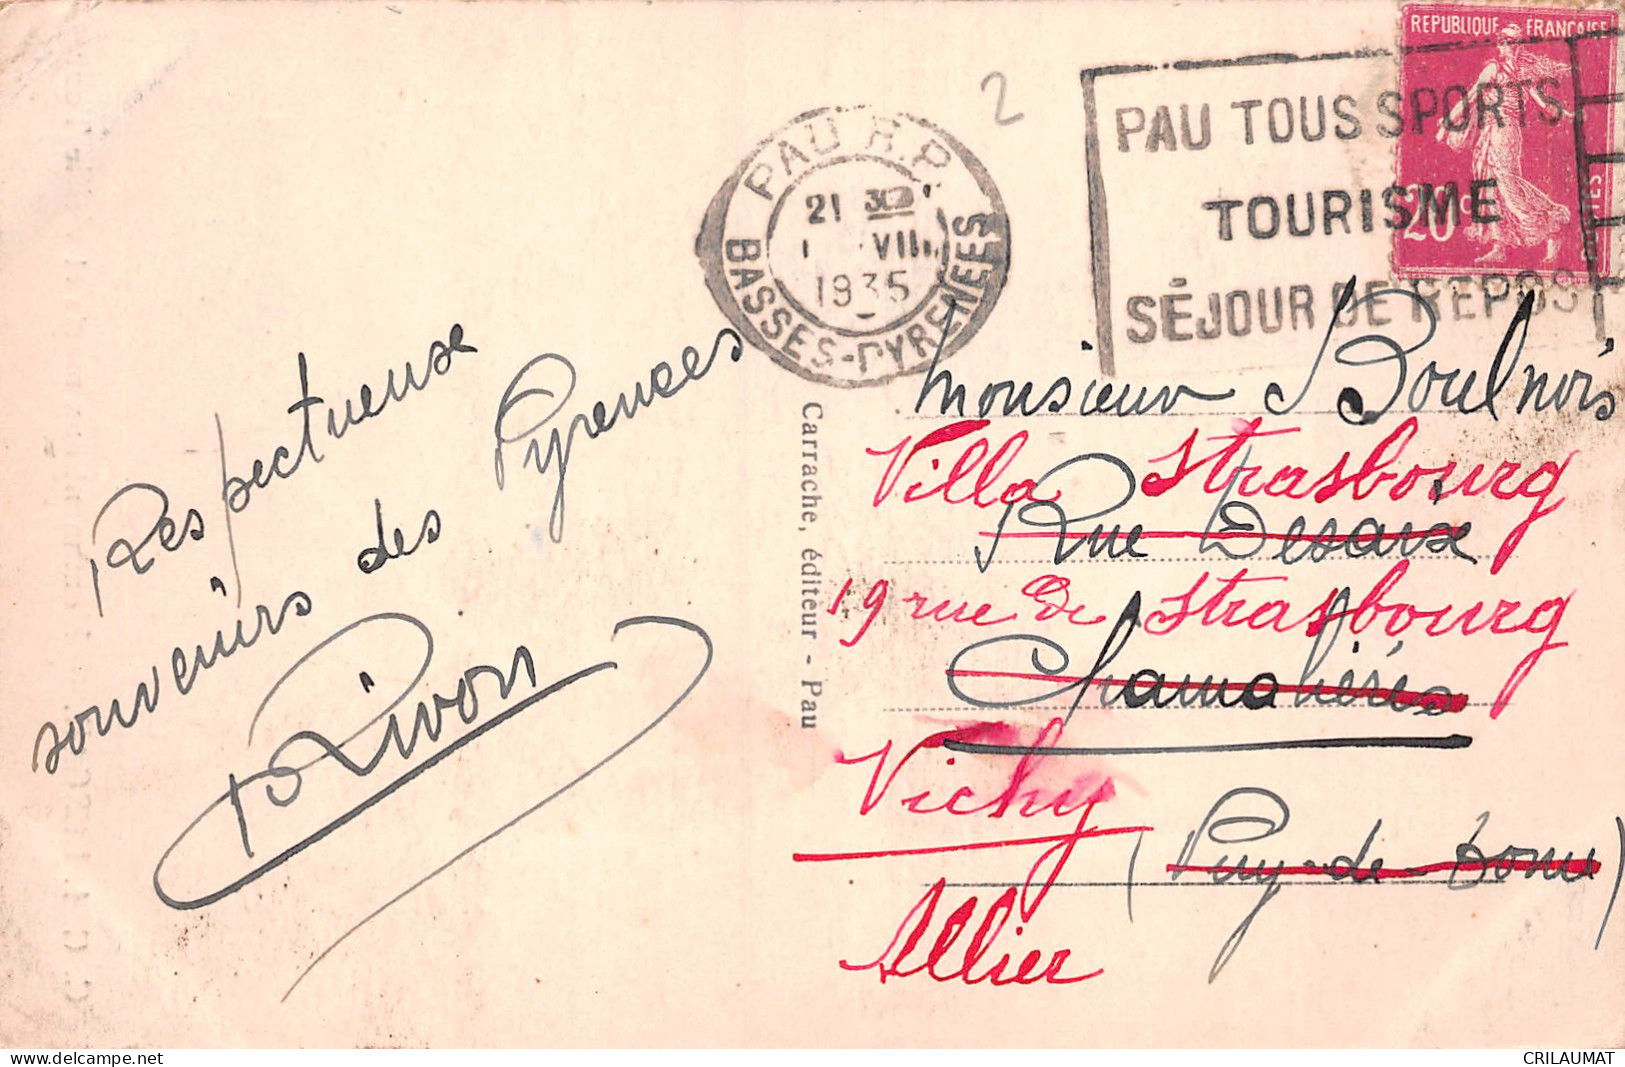 Respectueuse
souvenirs des Pyrenees
Rivon
PAU R.P.
21 30
1 VII
1935
BASSES-PYRENEES
2
PAU TOUS SPORTS
TOURISME
SÉJOUR DE REPOS
REPUBLIQUE FRANÇAISE
20c
POSTES
Carrache, éditeur - Pau
Monsieur Boulnois
Villa Strasbourg
Rue Desaix
19 rue de Strasbourg
Chamalières
Vichy
(Puy-de-Dome)
Allier
CRILAUMAT